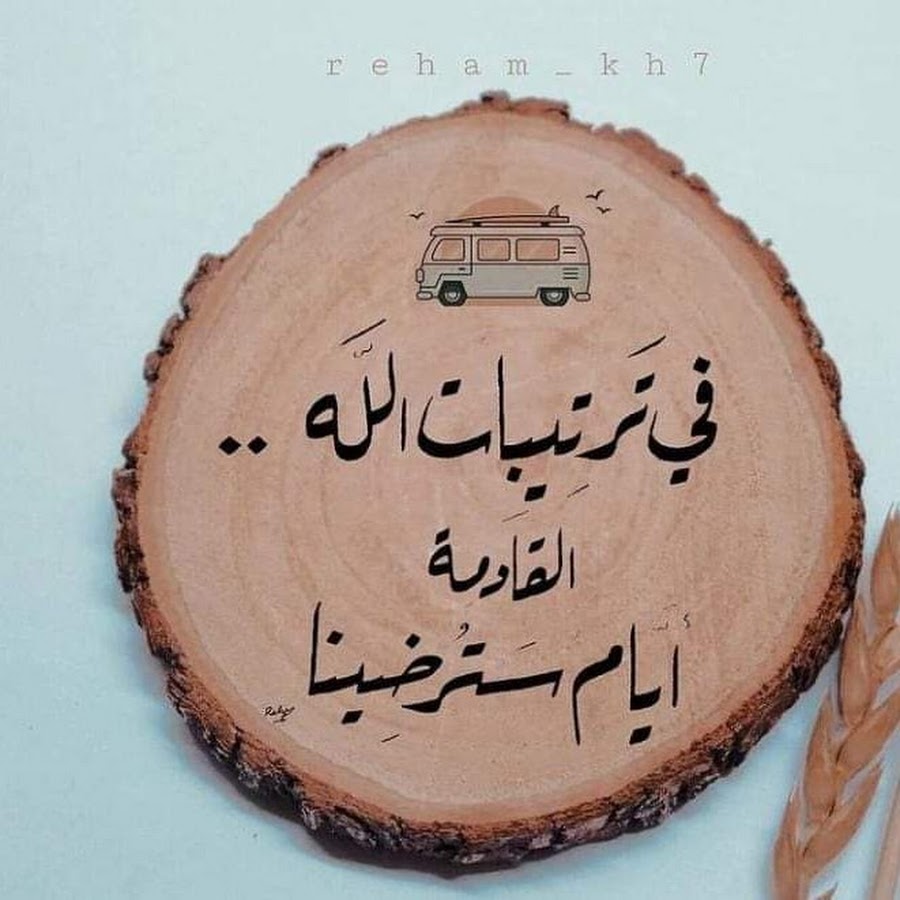 reham_kh7
في تَرتيباتِ اللَّه ..
القَادِمَة
أيَّام سَتُرضِينا